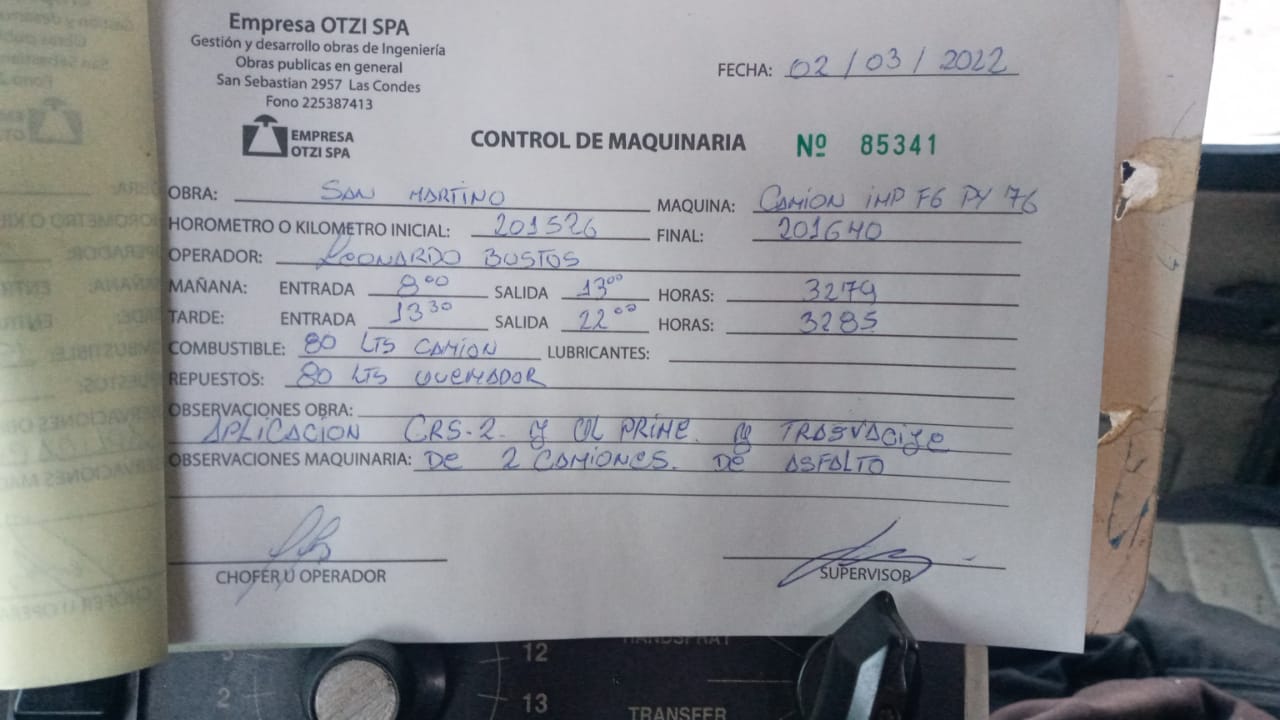 Empresa OTZI SPA
Gestión y desarrollo obras de Ingeniería
Obras publicas en general
San Sebastian 2957 Las Condes
Fono 225387413
EMPRESA
OTZI SPA
FECHA: 02/03/2022
CONTROL DE MAQUINARIA Nº 85341
OBRA: SAN MARTINO MAQUINA: CAMION IMP FG PY 76
HOROMETRO O KILOMETRO INICIAL: 201526 FINAL: 201640
OPERADOR: LEONARDO BUSTOS
MAÑANA: ENTRADA 8⁰⁰ SALIDA 13⁰⁰ HORAS: 3279
TARDE: ENTRADA 13³⁰ SALIDA 22⁰⁰ HORAS: 3285
COMBUSTIBLE: 80 LTS CAMION LUBRICANTES:
REPUESTOS: 80 LTS QUEMADOR
OBSERVACIONES OBRA:
APLICACION CRS-2. y OL PRIME. y TRASVACIJE
OBSERVACIONES MAQUINARIA: DE 2 CAMIONES. DE ASFALTO
CHOFER U OPERADOR SUPERVISOR
3 12 HANDSPRAY
2 13 TRANSFER